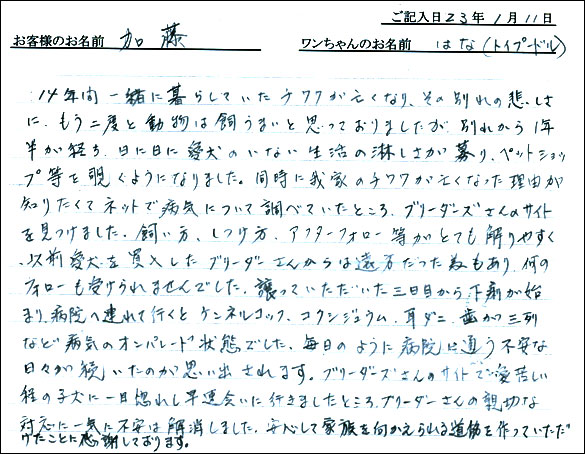 ご記入日23年1月11日
お客様のお名前 加藤 ワンちゃんのお名前 はな(トイプードル)
14年間一緒に暮らしていたチワワが亡くなり、その別れの悲しさ
に、もう二度と動物は飼うまいと思っておりましたが、別れから1年
半が経ち、日に日に愛犬のいない生活の淋しさが募り、ペットショッ
プ等を覗くようになりました。同時に我家のチワワが亡くなった理由が
知りたくてネットで病気について調べていたところ、ブリーダーズさんのサイト
を見つけました、飼い方、しつけ方、アフターフォロー等がとても解りやすく
、以前愛犬を買入したブリーダーさんからは遠方だった為もあり、何の
フォローも受けられませんでした、譲っていただいた三日目から下痢が始
まり、病院へ連れて行くとケンネルコッフ、コクシジュウム、耳ダニ、歯が三列
など病気のオンパレード状態でした、毎日のように病院に通う不安な
日々が続いたのが思い出されます。ブリーダーズさんのサイトで愛苦しい
程の子犬に一目惚れし早速会いに行きましたところ、ブリーダーさんの親切な
対応に一気に不安は解消しました、安心して家族を向かえられる道筋を作っていただ
けたことに感謝しております。